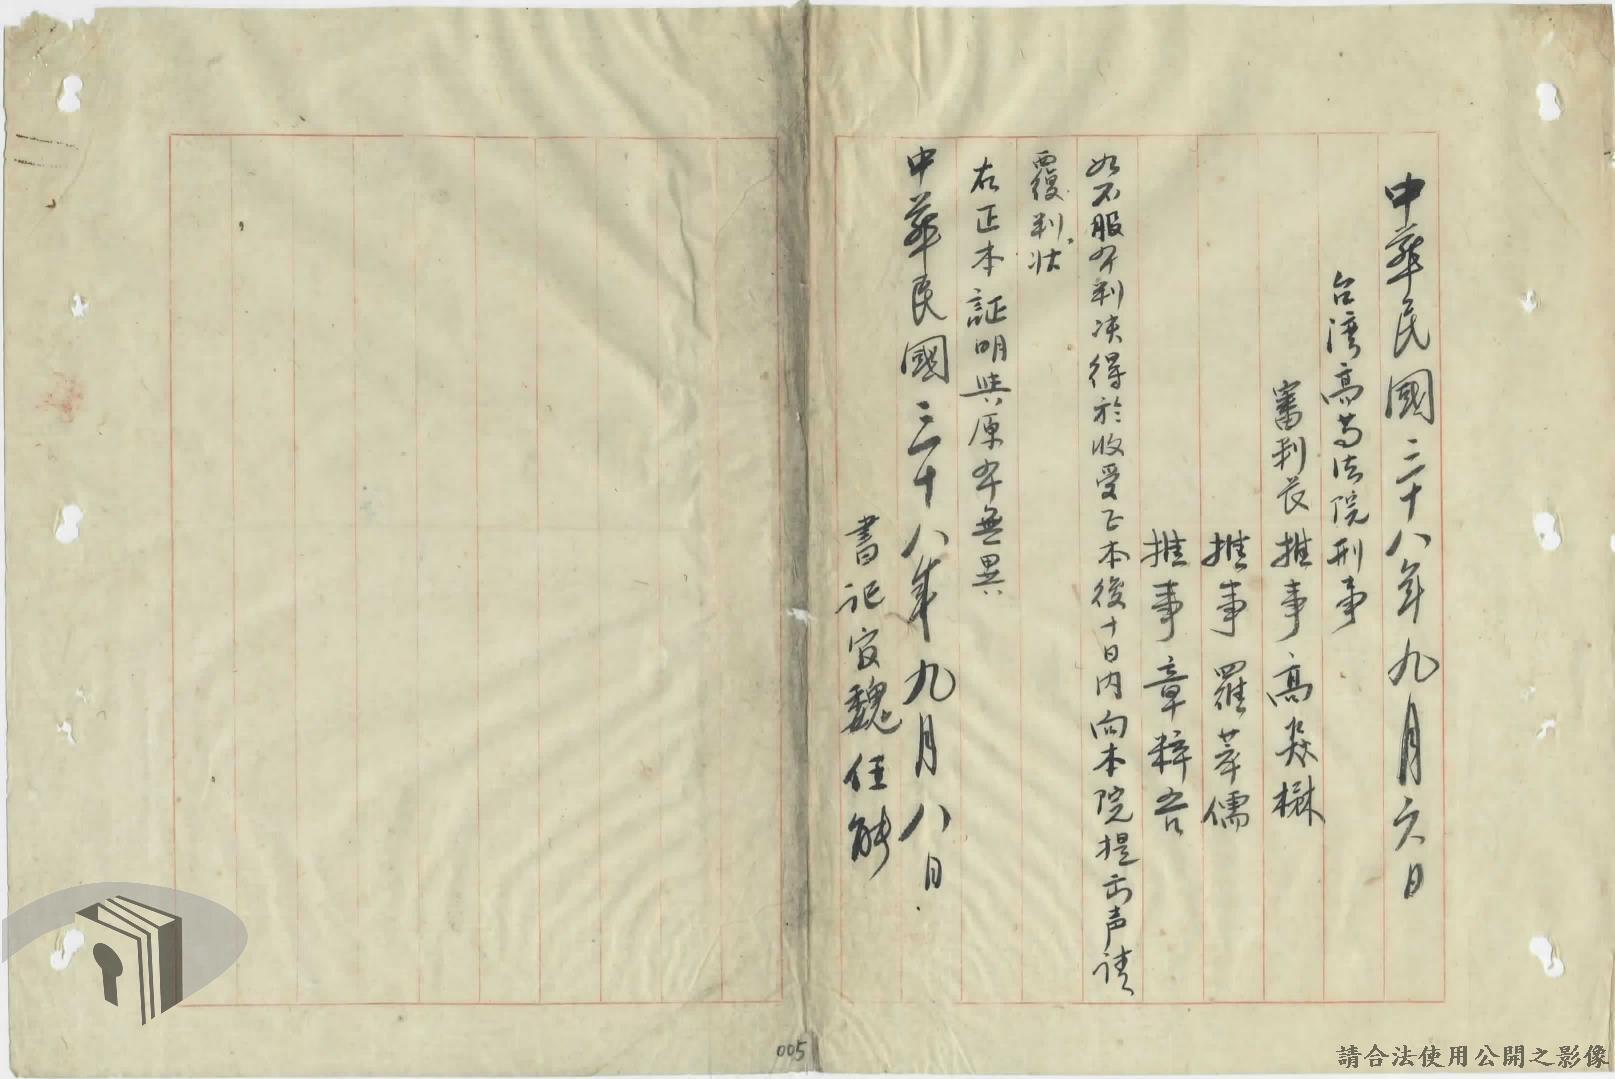 中華民國三十八年九月六日
台湾高等法院刑事
審判長推事高
推事羅萃儒
推事章粹吾
如不服本判决得於收受正本後十日内向本院提出声请
覆判状
右正本証明與原本無異
中華民國三十八年九月八日
書记官魏任
005
請合法使用公開之影像